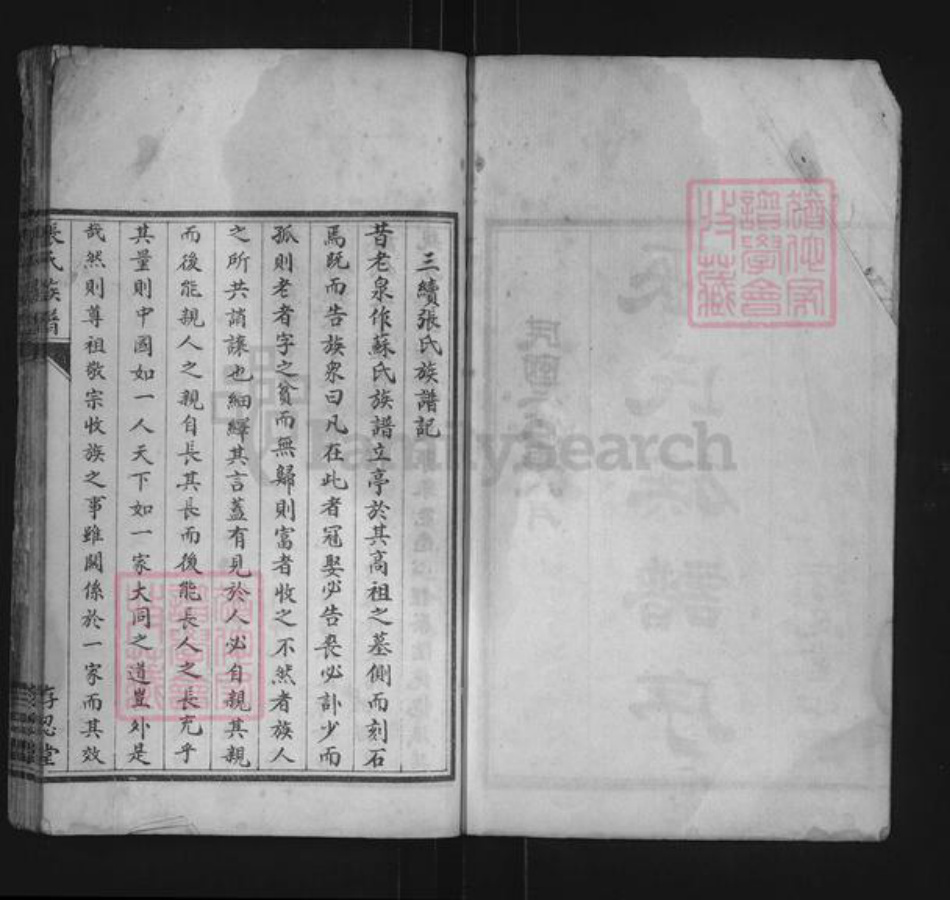 三續張氏族譜記
昔老泉作蘇氏族譜立亭於其高祖之墓側而刻石
焉既而告族衆曰凡在此者冠娶必告喪必訃少而
孤則老者字之貧而無歸則富者收之不然者族人
之所共誚讓也細繹其言蓋有見於人必自親其親
而後能親人之親自長其長而後能長人之長充乎
其量則中國如一人天下如一家大同之道豈外是
哉然則尊祖敬宗收族之事雖關係於一家而其效
張氏族譜
存忍堂
FamilySearch